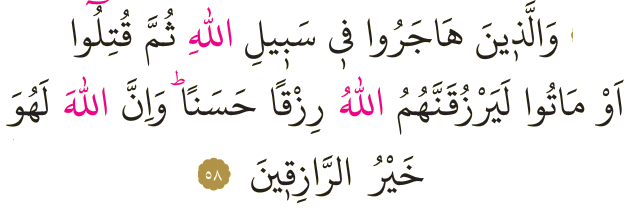 وَالَّذ۪ينَ هَاجَرُوا ف۪ي سَب۪يلِ اللّٰهِ ثُمَّ قُتِلُٓوا
اَوْ مَاتُوا لَيَرْزُقَنَّهُمُ اللّٰهُ رِزْقًا حَسَنًاۜ وَاِنَّ اللّٰهَ لَهُوَ
خَيْرُ الرَّازِق۪ينَ ﴿٥٨﴾